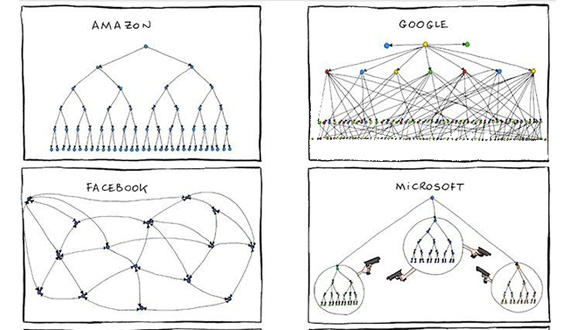 AMAZON
GOOGLE
FACEBOOK
MICROSOFT